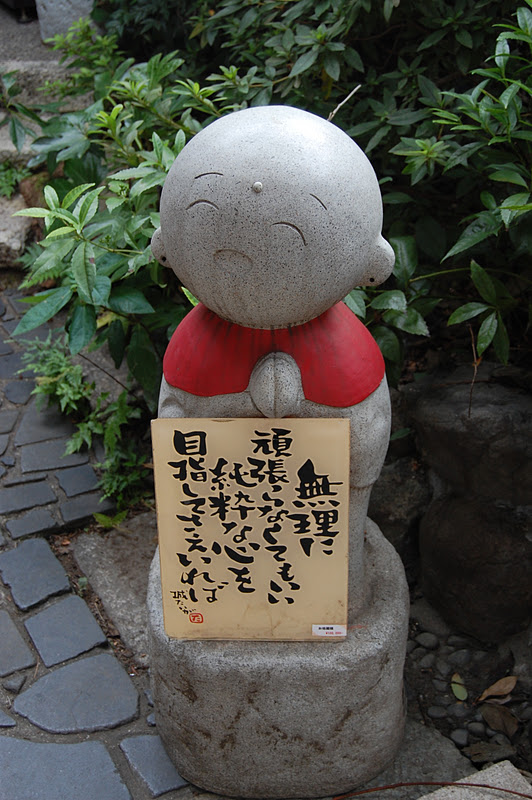 無理に
頑張らなくてもいい
純粋な心を
目指してさえいれば